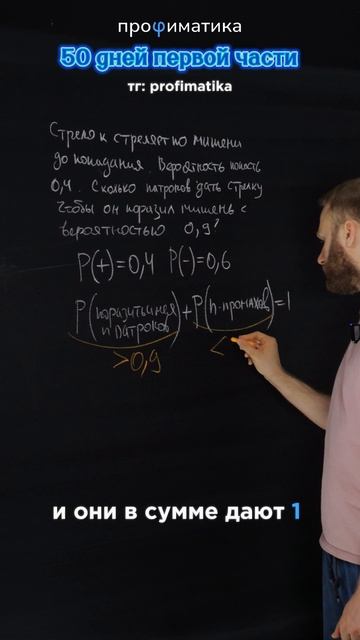 профиматика
50 дней первой части
тг: profimatika
Стрелок стреляет по мишени
до попадания. Вероятность попасть
0,4. Сколько патронов дать стрелку
чтобы он поразил мишень с
вероятностью 0,9?
P(+)=0,4 P(-)=0,6
P(поразить имея n патронов)+P(n-промахов)=1
>0,9 <
и они в сумме дают 1